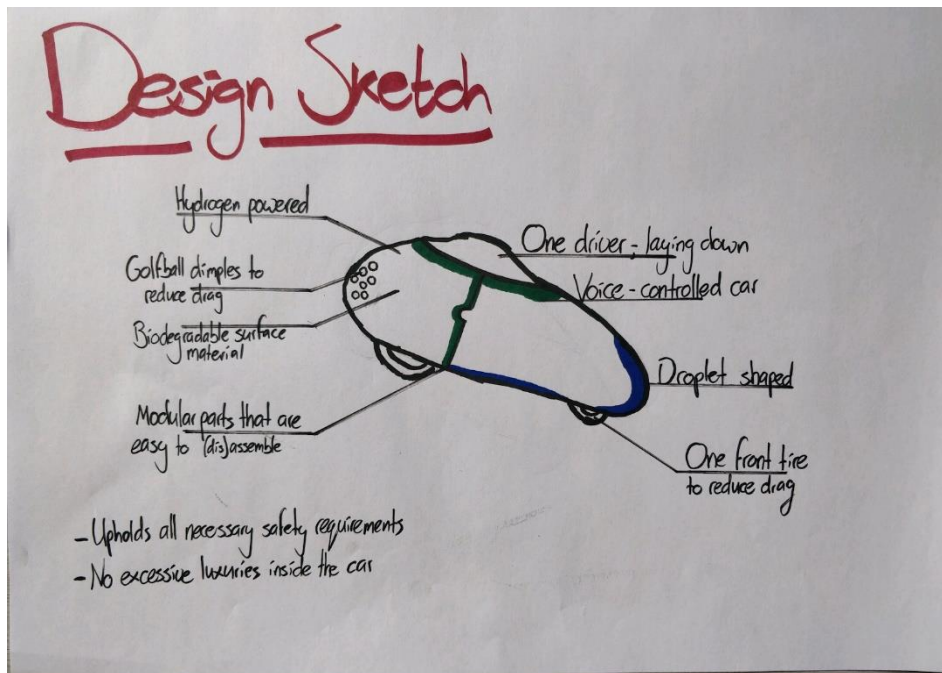 Design Sketch
Hydrogen powered
Golfball dimples to
reduce drag
Biodegradable surface
material
Modular parts that are
easy to (dis)assemble
One driver - laying down
Voice - controlled car
Droplet shaped
One front tire
to reduce drag
- Upholds all necessary safety requirements
- No excessive luxuries inside the car